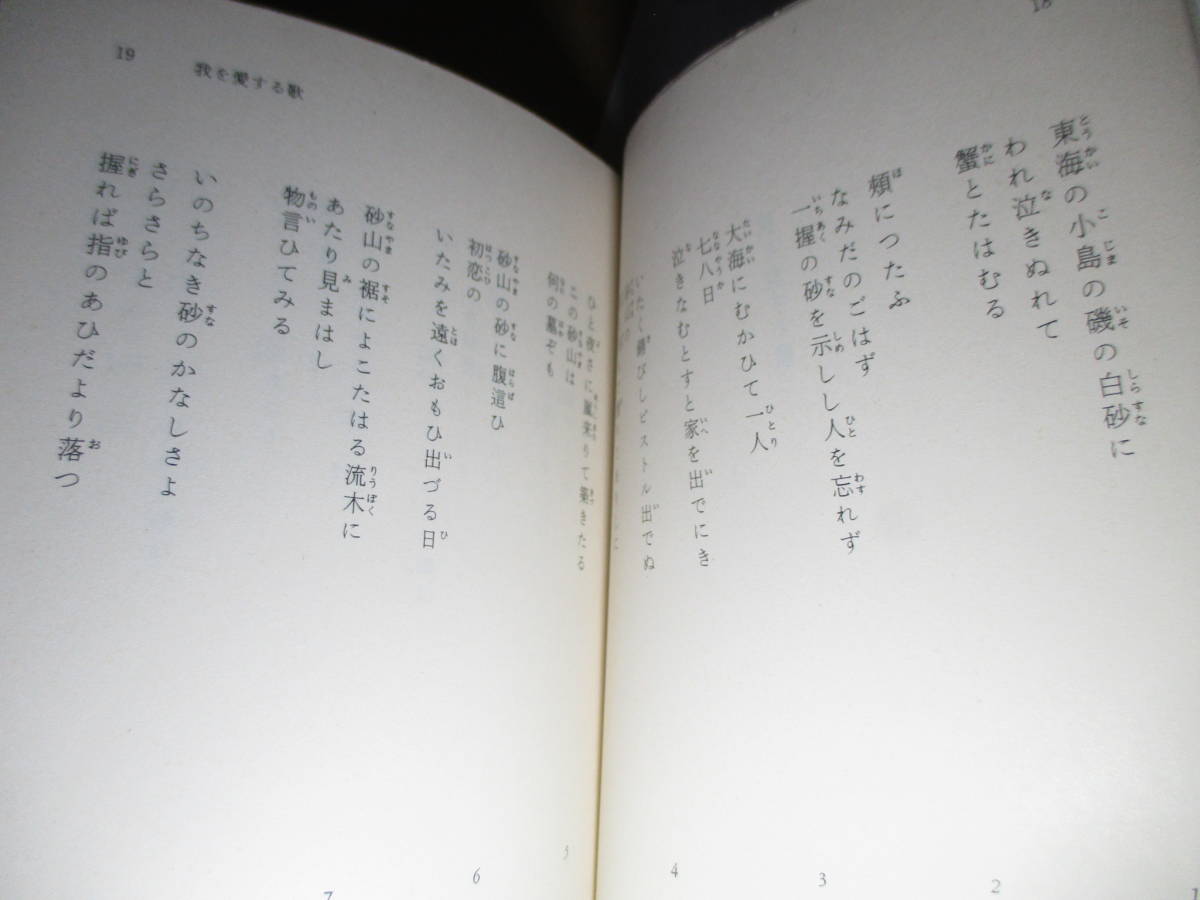 18
東海の小島の磯の白砂に
われ泣きぬれて
蟹とたはむる
1
頬につたふ
なみだのごはず
一握の砂を示しし人を忘れず
2
大海にむかひて一人
七八日
泣きなむとすと家を出でにき
3
いたく錆びしピストル出でぬ
4
19
我を愛する歌
ひと夜さに嵐来りて築きたる
この砂山は
何の墓ぞも
5
砂山の砂に腹這ひ
初恋の
いたみを遠くおもひ出づる日
6
砂山の裾によこたはる流木に
あたり見まはし
物言ひてみる
7
いのちなき砂のかなしさよ
さらさらと
握れば指のあひだより落つ